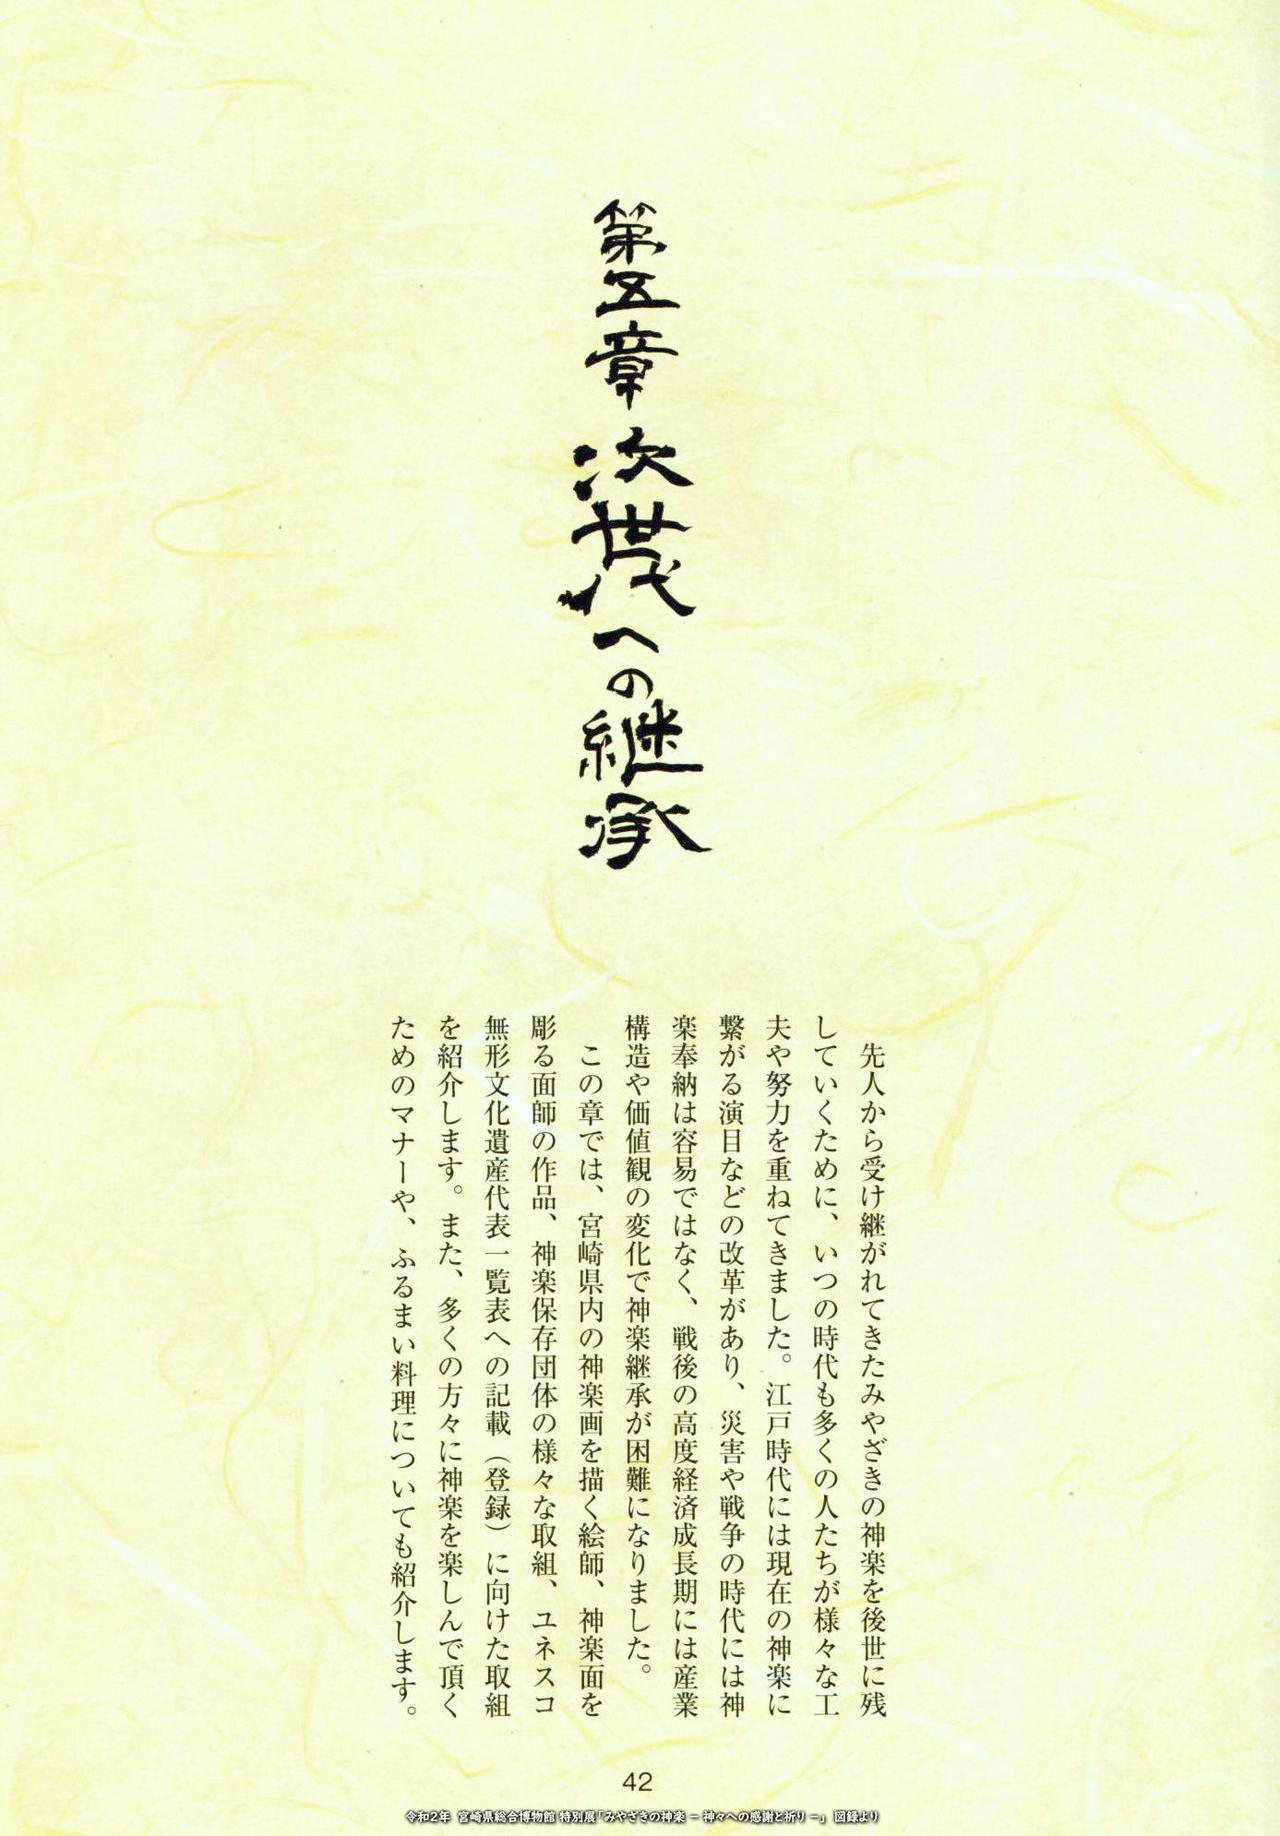 第五章 次世代への継承
先人から受け継がれてきたみやざきの神楽を後世に残
していくために、いつの時代も多くの人たちが様々な工
夫や努力を重ねてきました。江戸時代には現在の神楽に
繋がる演目などの改革があり、災害や戦争の時代には神
楽奉納は容易ではなく、戦後の高度経済成長期には産業
構造や価値観の変化で神楽継承が困難になりました。
この章では、宮崎県内の神楽画を描く絵師、神楽面を
彫る面師の作品、神楽保存団体の様々な取組、ユネスコ
無形文化遺産代表一覧表への記載（登録）に向けた取組
を紹介します。また、多くの方々に神楽を楽しんで頂く
ためのマナーや、ふるまい料理についても紹介します。
42
令和2年 宮崎県総合博物館 特別展「みやざきの神楽 － 神々への感謝と祈り －」 図録より